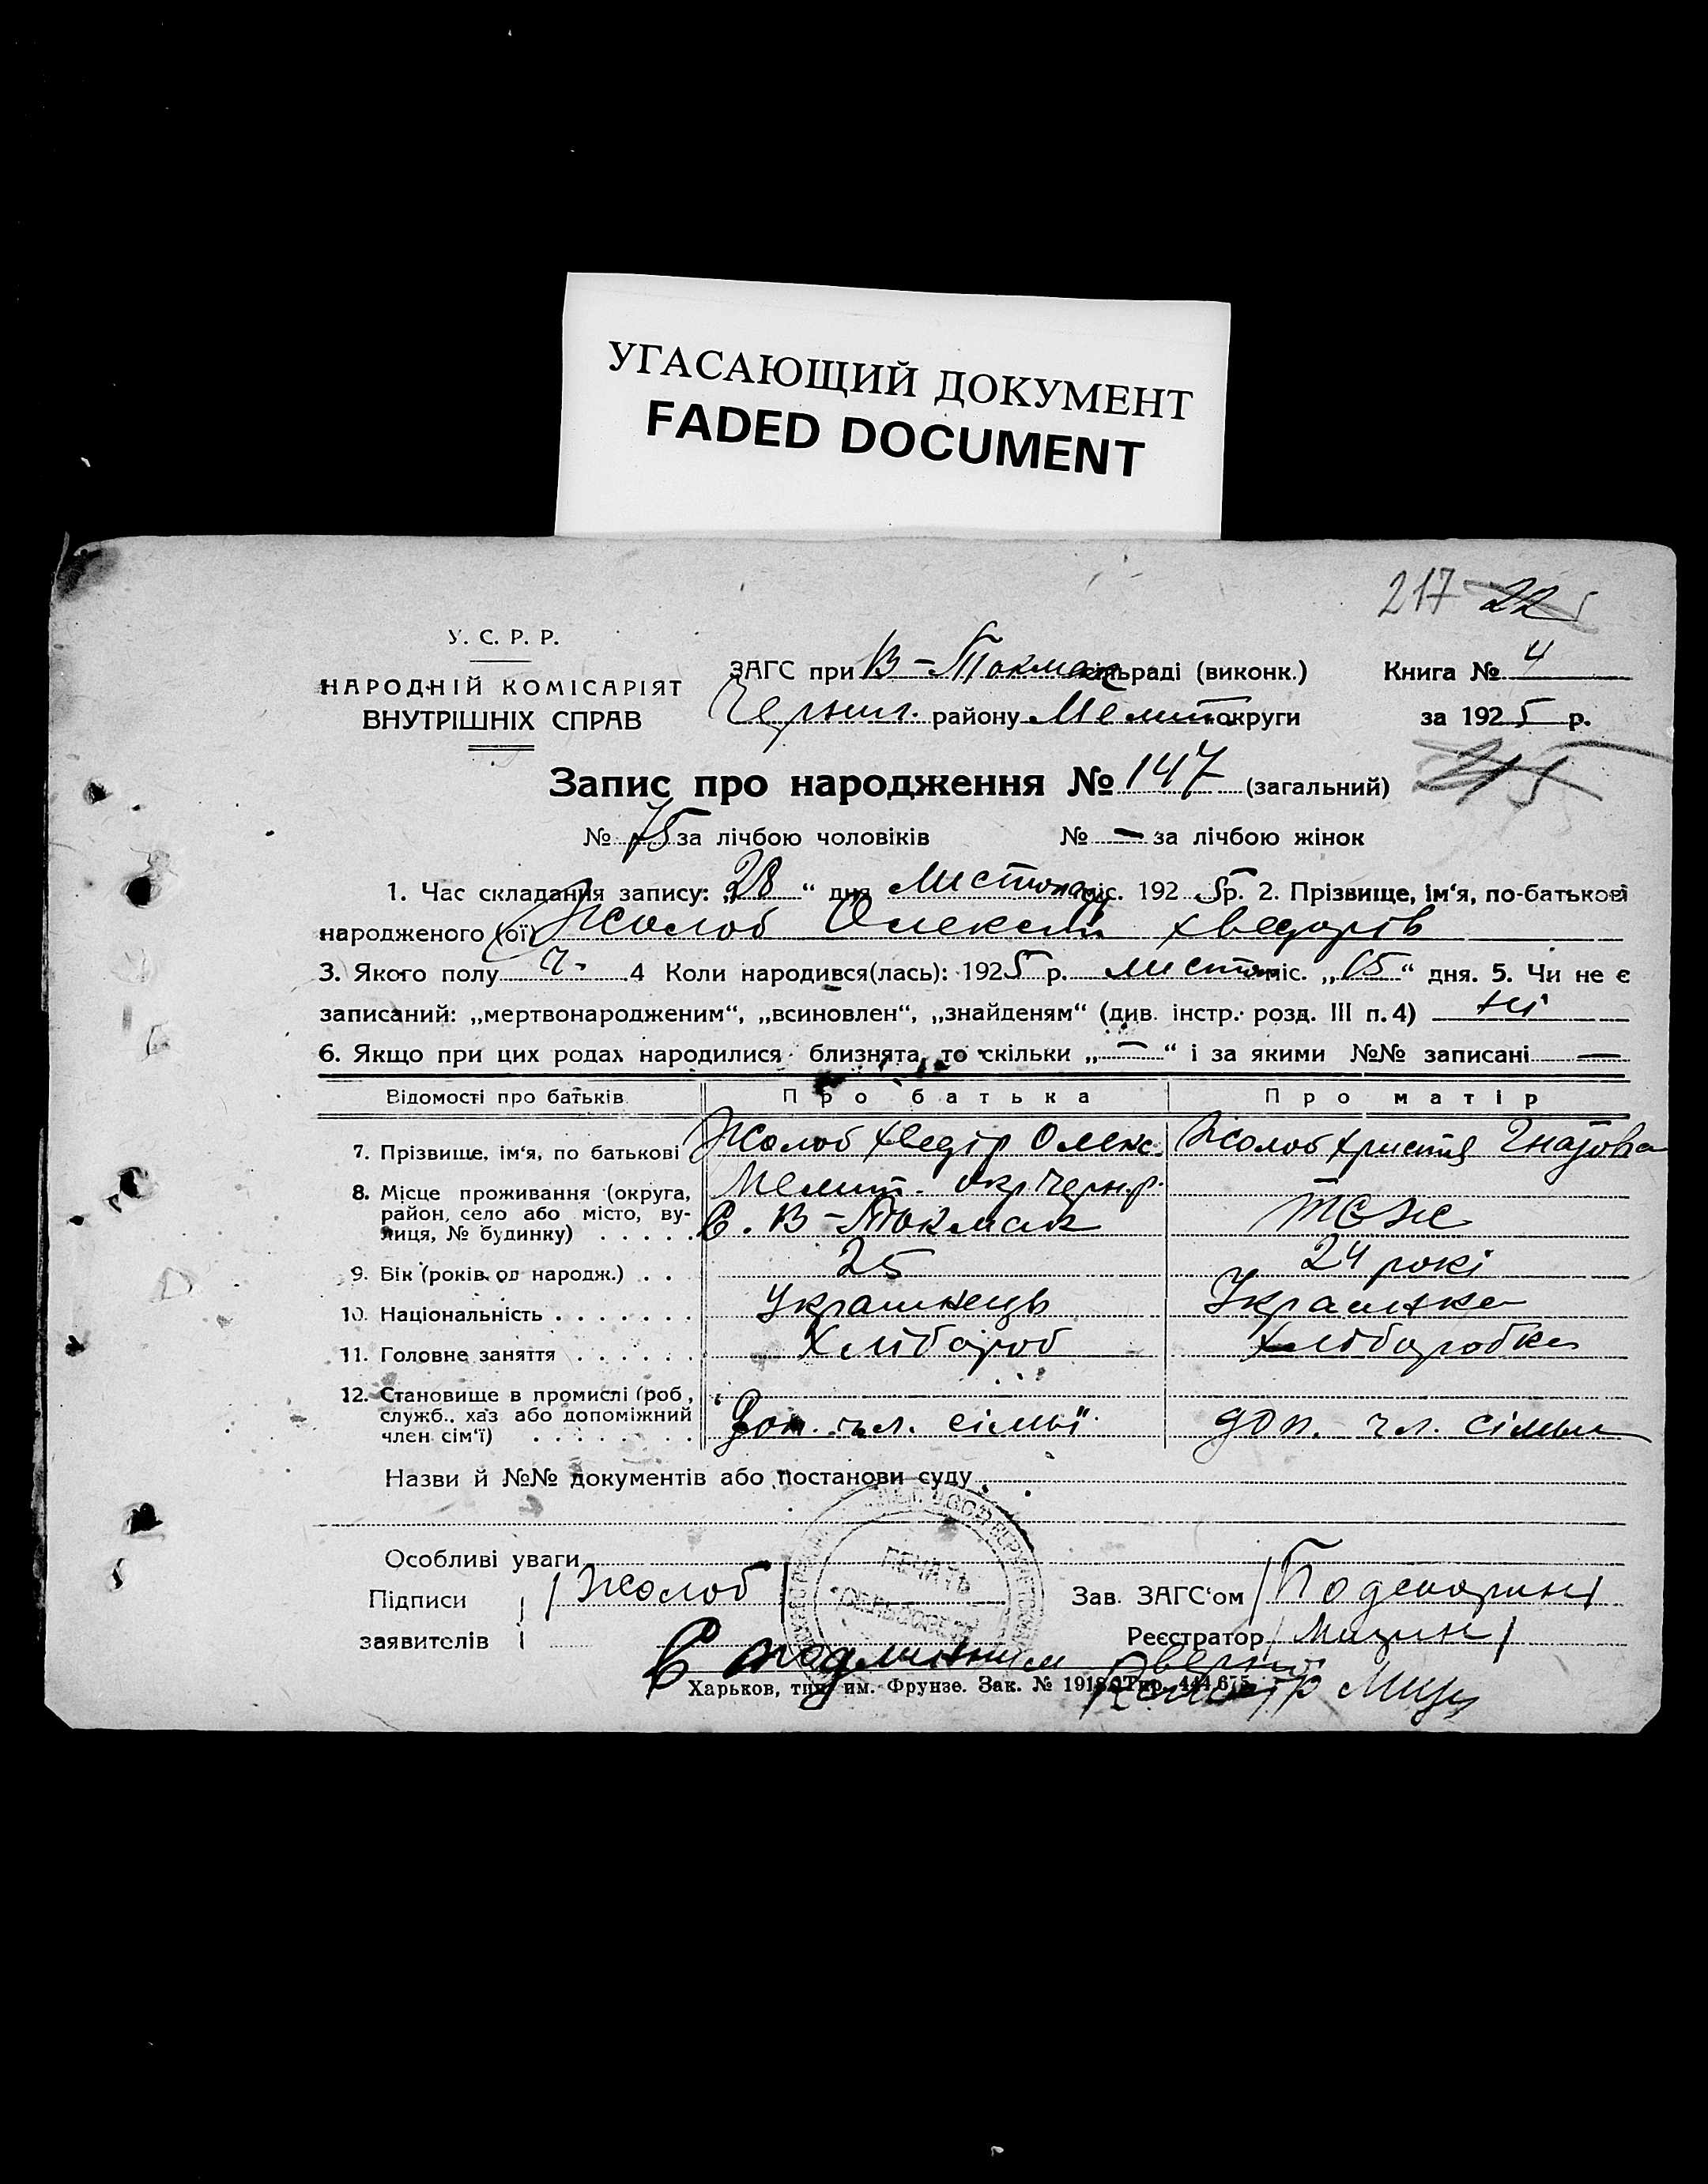 УГАСАЮЩИЙ ДОКУМЕНТ
FADED DOCUMENT
217 22
У. С. Р. Р.
НАРОДНІЙ КОМІСАРІЯТ
ВНУТРІШНІХ СПРАВ
ЗАГС при В-Токмак сільраді (виконк.)
Черниг. району Мелит. округи
Книга № 4
за 1925 р.
Запис про народження № 147 (загальний) 215
№ 75 за лічбою чоловіків № — за лічбою жінок
1. Час складання запису: „28“ дня Листопад міс. 1925 р. 2. Прізвище, ім‘я, по-батькові
народженого (ої) Жолоб Олексій Хведорів
3. Якого полу ч. 4 Коли народився(лась): 1925 р. листоп міс. „15“ дня. 5. Чи не є
записаний: „мертвонародженим“, „всиновлен“, „знайденям“ (див. інстр. розд. III п. 4) ні
6. Якщо при цих родах народилися близнята, то скільки „—“ і за якими №№ записані —
Відомості про батьків Про батька Про матір
7. Прізвище, ім‘я, по батькові Жолоб Хведір Олекс. Жолоб Христя Гнатова
8. Місце проживання (округа, район, село або місто, вулиця, № будинку) . . . . . Мелит. окр. Черн. р. с. В-Токмак тож
9. Вік (років од народж.) . . 25 24 рокі
10. Національність . . . . . . . Украинець Украинка
11. Головне заняття . . . . . . Хлібороб Хліборобка
12. Становище в промислі (роб., служб., хаз або допоміжний член сім‘ї) . . . . . . . . Доп. чл. сімьї доп. чл. сімьи
Назви й №№ документів або постанови суду
ПЕЧАТЬ
Особливі уваги
Підписи
заявителів /Жолоб/
Зав. ЗАГС‘ом /Подскорин/
Реєстратор /Мицин/
С подлинним верно
Харьков, тип. им. Фрунзе. Зак. № 1918. Тир. 444.675